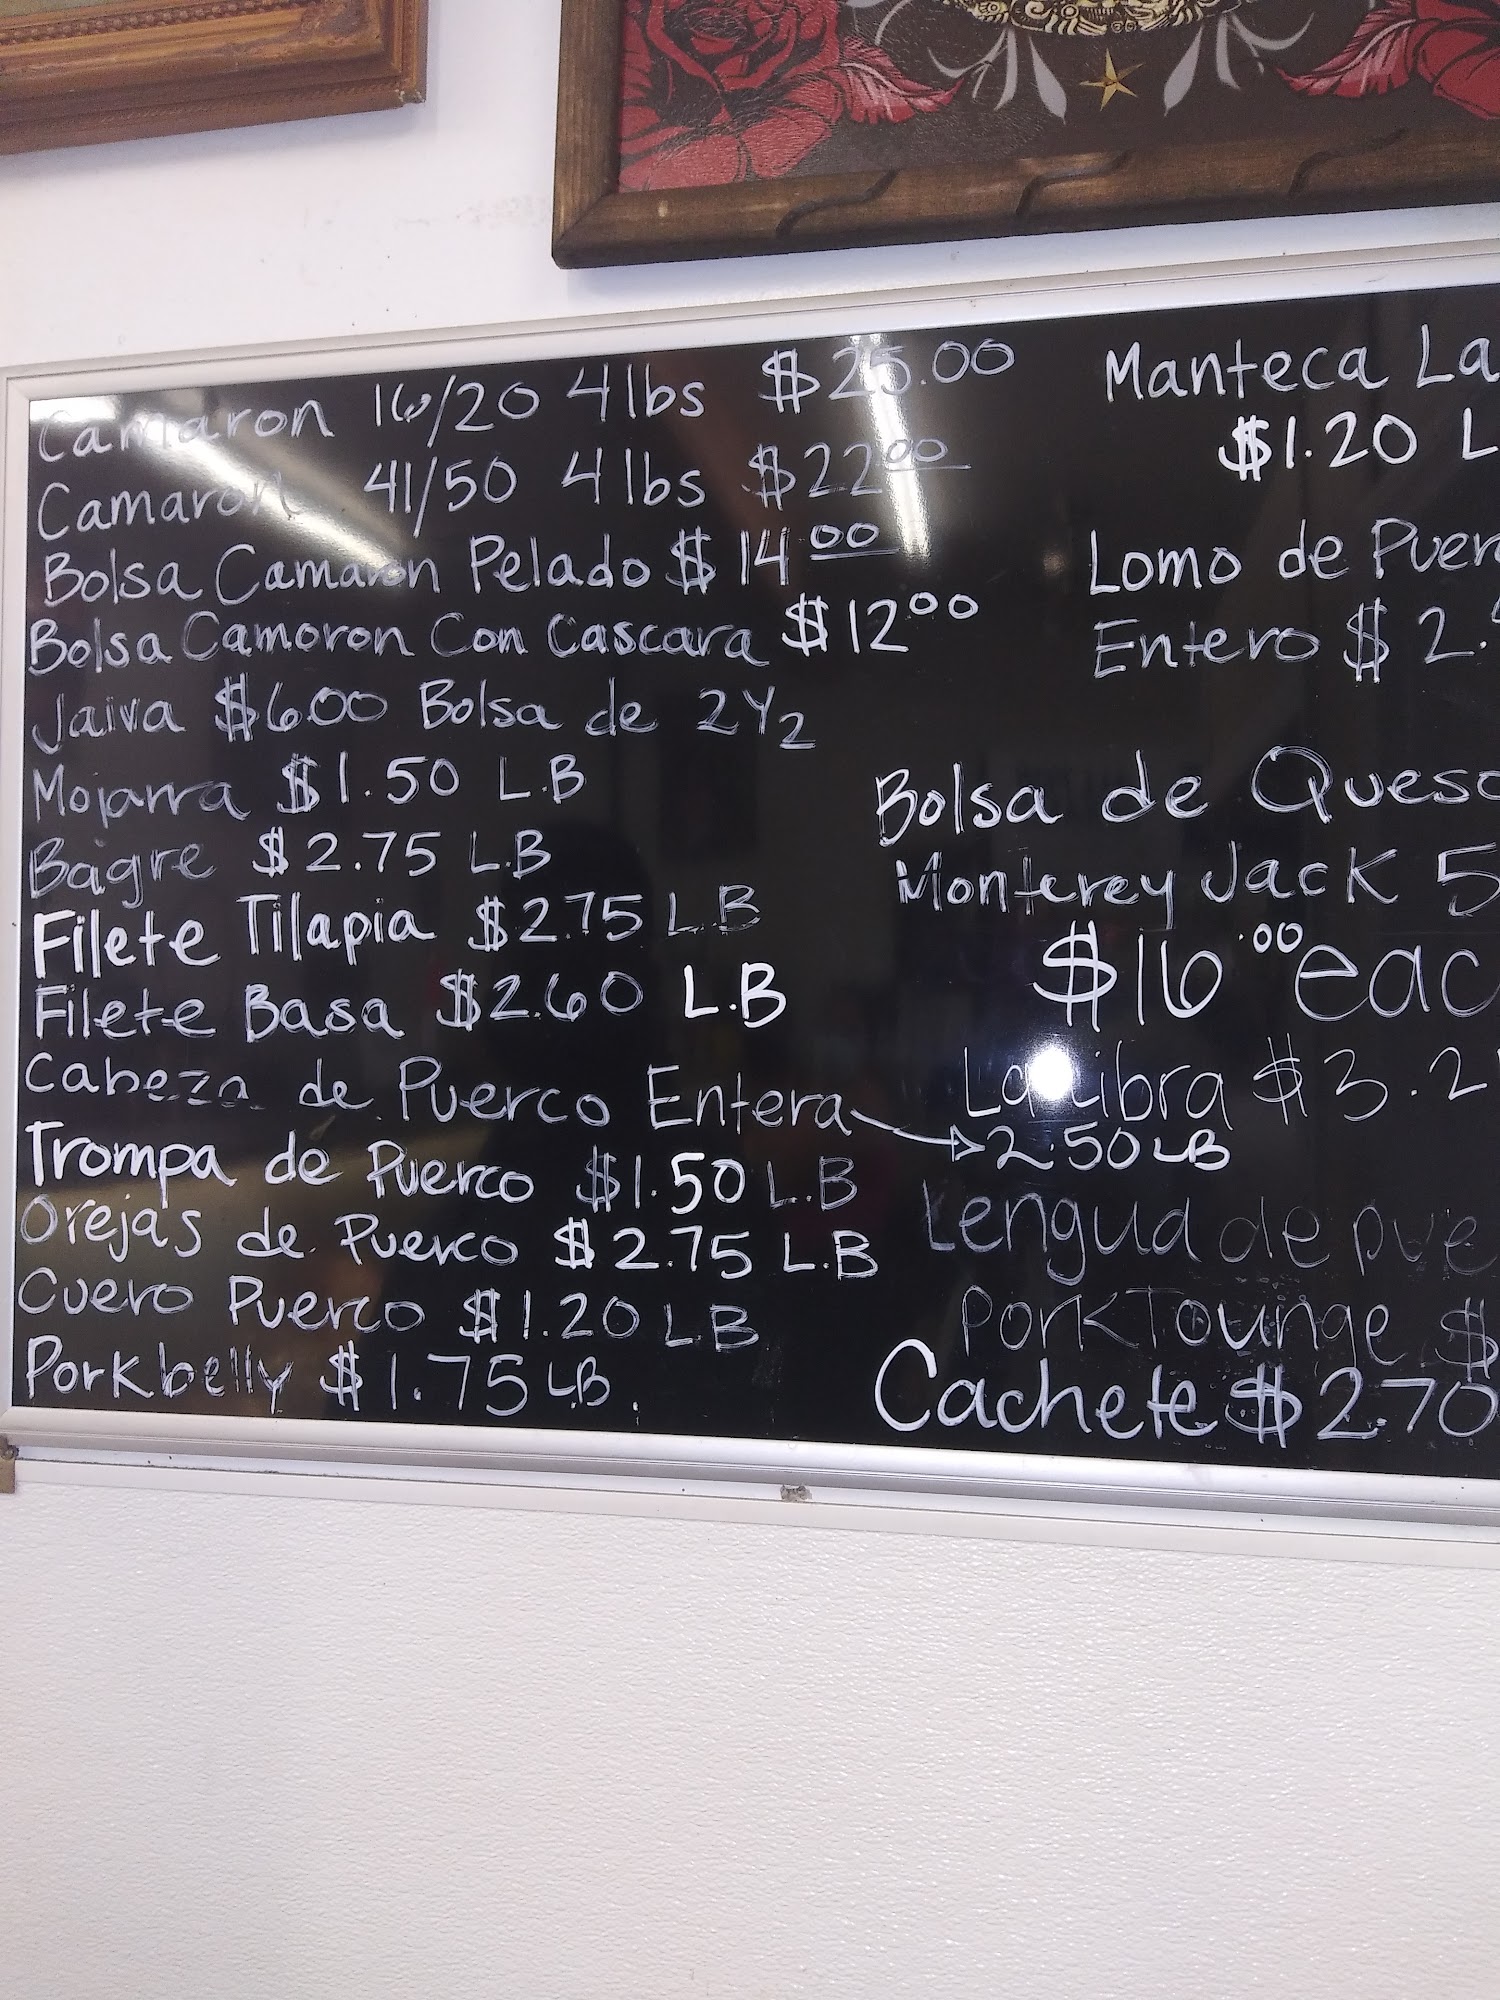 Camaron 16/20 4lbs $25.00
Camaron 41/50 4lbs $22.00
Bolsa Camaron Pelado $14.00
Bolsa Camoron Con Cascara $12.00
Jaiva $6.00 Bolsa de 2 1/2
Mojarra $1.50 L.B
Bagre $2.75 L.B
Filete Tilapia $2.75 L.B
Filete Basa $2.60 L.B
Cabeza de Puerco Entera → 2.50 LB
Trompa de Puerco $1.50 L.B
Orejas de Puerco $2.75 L.B
Cuero Puerco $1.20 L.B
Pork belly $1.75 LB
Manteca La
$1.20 L
Lomo de Puer
Entero $2.
Bolsa de Queso
Monterey Jack 5
$16.00 eac
La Libra $3.2
Lengua de pue
Pork Tounge $
Cachete $2.70